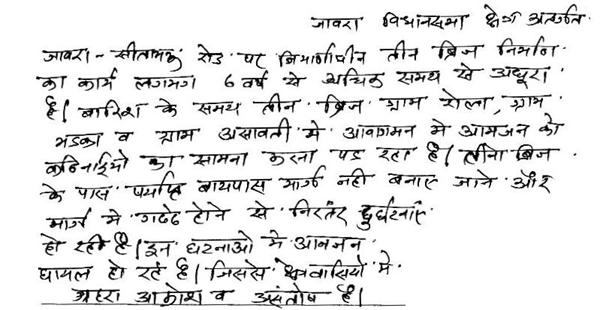 जावरा विधानसभा क्षेत्र अंतर्गत
जावरा - सीतामऊ रोड पर निमार्णाधीन तीन ब्रिज निर्माण
का कार्य लगभग 6 वर्ष से अधिक समय से अधुरा
है। बारिश के समय तीन ब्रिज ग्राम रोला, ग्राम
भडका व ग्राम असावती मे आवागमन मे आमजन को
कठिनाईयो का सामना करना पड रहा है। तीनो ब्रिज
के पास पर्याप्त बायपास मार्ग नही बनाए जाने और
मार्ग मे गढ्ढे होने से निरंतर दुर्घटनाएं
हो रही है। इन घटनाओ मे आमजन
घायल हो रहे है। जिससे क्षेत्रवासियो मे
गहरा आक्रोश व असंतोष है।